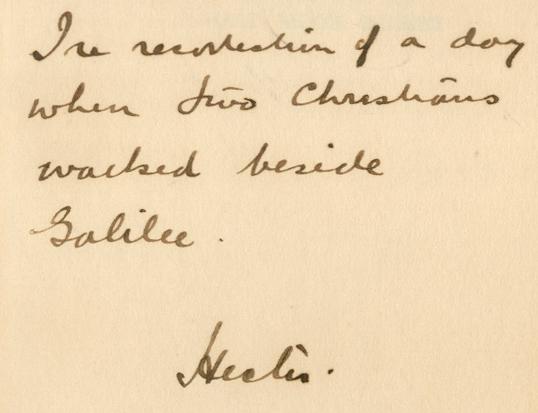 In recollection of a day
when two Christians
walked beside
Galilee.
Hector.